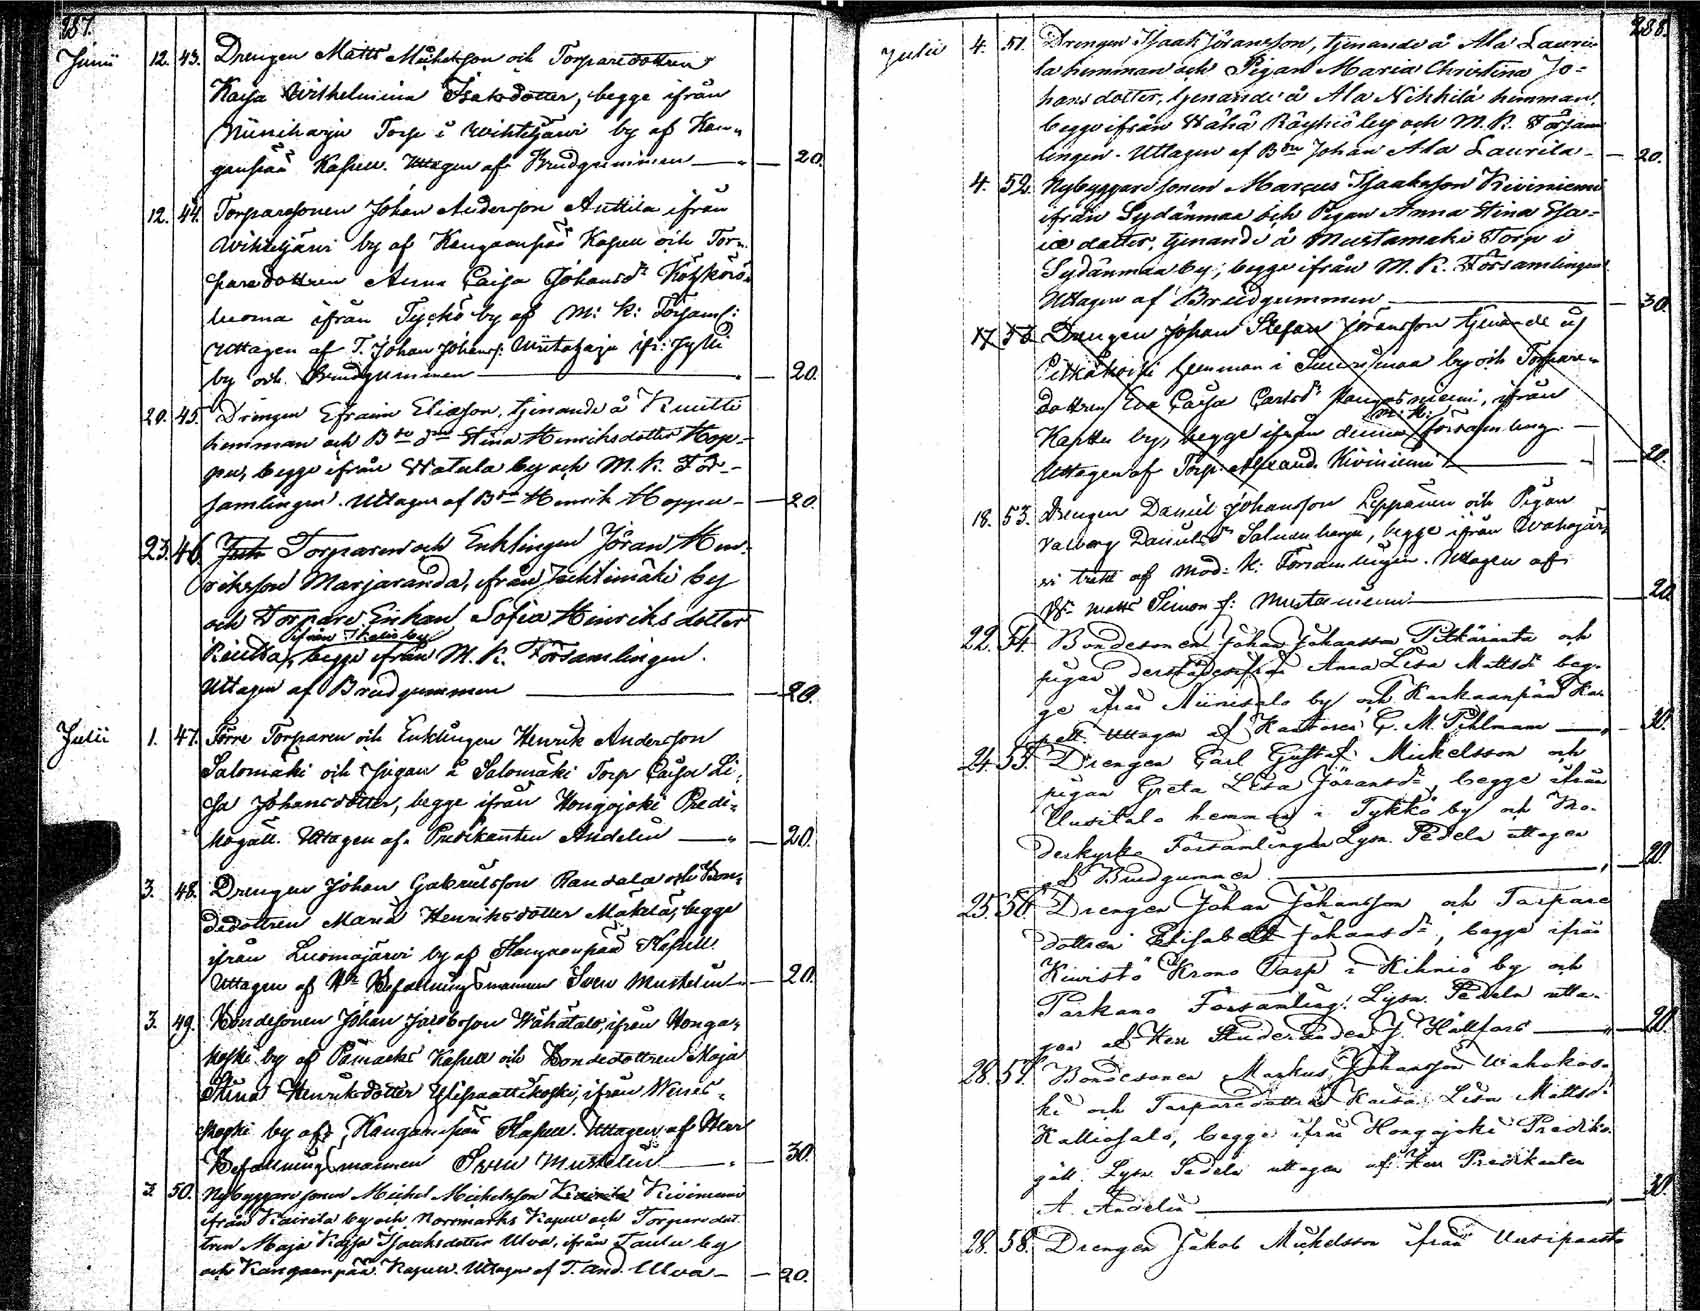 287.
Junii 12. 43. Drengen Matts Michelsson och Torparedottren
Kaisa Wilhelmina Isaksdotter, begge ifrån
Niiniharju Torp i Wihteljärvi by af Kan-
ganpää Kapell. Uttagen af Brudgummen — 20.
12. 44. Torparesonen Johan Andersson Anttila ifrån
Wihteljärvi by af Kangaanpää Kapell och Tor-
paredottren Anna Caisa Johansdr
luoma ifrån Tyckö by af M: K: Församl:
Uttagen af T. Johan Johanss: ifr: Jylli
by och Brudgummen — 20.
20. 45. Drengen Efraim Eliasson, tjenande å Knutti
hemman och Stina Henriksdotter Hop-
pu, begge ifrån Watula by och M. K. För-
samlingen. Uttagen af Henrik Hoppu — 20.
23. 46. Torparen och Enklingen Jöran Hen-
riksson Marjaranda, ifrån Jahtimäki by
och Torpare Enkan Sofia Henriks dotter
begge ifrån M. K. Församlingen.
Uttagen af Brudgummen — 20.
Julii 1. 47. Förre Torparen och Enklingen Henrik Andersson
Salomäki och Pigan å Salomäki Torp Caisa Li-
sa Johansdotter, begge ifrån Hongojoki Predi-
kogäll. Uttagen af Predikanten Andelin — 20.
3. 48. Drengen Johan Gabrielsson Randala och Bon-
dedottren Maria Henriksdotter Mäkelä, begge
ifrån Luomajärvi by af Kangaanpää Kapell.
Uttagen af Hr Befallningsmannen Sven Muskelin — 20.
3. 49. Bondesonen Johan Jacobsson Wähätalo, ifrån Honga-
koski by af Påmarks Kapell och Bondedottren Maja
Stina Henriksdotter Ylipaattikoski, ifrån Wenes-
koski by af Kanganpää Kapell. Uttagen af Herr
Befallningsmannen Sven Muskelin — 30.
3. 50. Nybyggaresonen Michel Michelsson Kiviniemi
ifrån Kairila by och Norrmarks Kapell och Torparedot-
tren Maja Kajsa Isaaksdotter Ulva, ifrån Taulu by
och Kangaanpää Kapell. Uttagen af T. And. Ulva — 20.
288.
Julii 4. 51. Drengen Isaak Jöransson, tjenande å Ala Lauri-
la hemman och Pigan Maria Christina Jo-
hans dotter, tjenande å Ala Nikkilä hemman,
begge ifrån Wähä Räyhiö by och M. K. Försam
lingen. Uttagen af Bdn Johan Ala Laurila — 20.
4. 52. Nybyggaresonen Marcus Isaaksson Kiviniemi
ifrån Sydänmaa och Pigan Anna Stina Esa-
iæ dotter, tjenande å Mustamäki Torp i
Sydänmaa by; begge ifrån M. K. Församlingen
Uttagen af Brudgummen — 30.
17 53 Drengen Johan Stefan Jöransson tjenande å
Pitkäkoski hemman i Suurismaa by och Torpare-
dottren Eva Caisa Carlsdr Kangasniemi, ifrån
by, begge ifrån denna M: K: församling.
Uttagen af Torp. Alexand. Kiviniemi — 20.
18. 53. Drengen Daniel Johansson Leppänen och Pigan
Valborg Danielsdr Salmenharju, begge ifrån Wahojär-
vi trakt af Mod: K: Församlingen. Uttagen af
Matts Simon s: Mustaniemi — 20.
22. 54. Bondesonen Johan Johansson Pitkäranta och
pigan derstädes ifrån Anna Lisa Mattsdr beg-
ge ifrån Niinisalo by och Kankaanpää Ka-
pell. Uttagen af Kantorn C. M. Pihlman — 30.
24. 55. Drengen Carl Gustaf Mickelsson och
pigan Greta Lisa Jöransdr, begge ifrån
Uusitalo hemman i Tykkö by och Mo-
derkyrko Församlingen Lysn. Sedeln uttagen
af Brudgummen — 20.
25. 56. Drengen Johan Johansson och Torpare
dottren Elisabeth Johansdr, begge ifrån
Kiviristö Krono Torp i Kihniö by och
Parkano Församling. Lysn. Sedeln utta-
gen af Herr Studeranden J. Hällfors — 20.
28. 57. Bondesonen Markus Johansson Wahokos-
ki och Torparedottren Kaisa Lisa Mattsd.
Kalliosalo, begge ifrån Hongojoki Prediko-
gäll. Lysn. Sedeln uttagen af Herr Predikanten
A. Andelin — 30.
28. 58. Drengen Jakob Mickelsson ifrån Uusipaasto